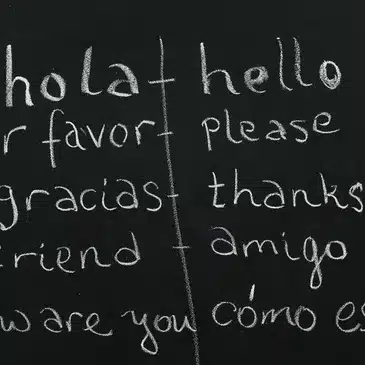 hola - hello
r favor - please
gracias - thanks
riend - amigo
w are you cómo es